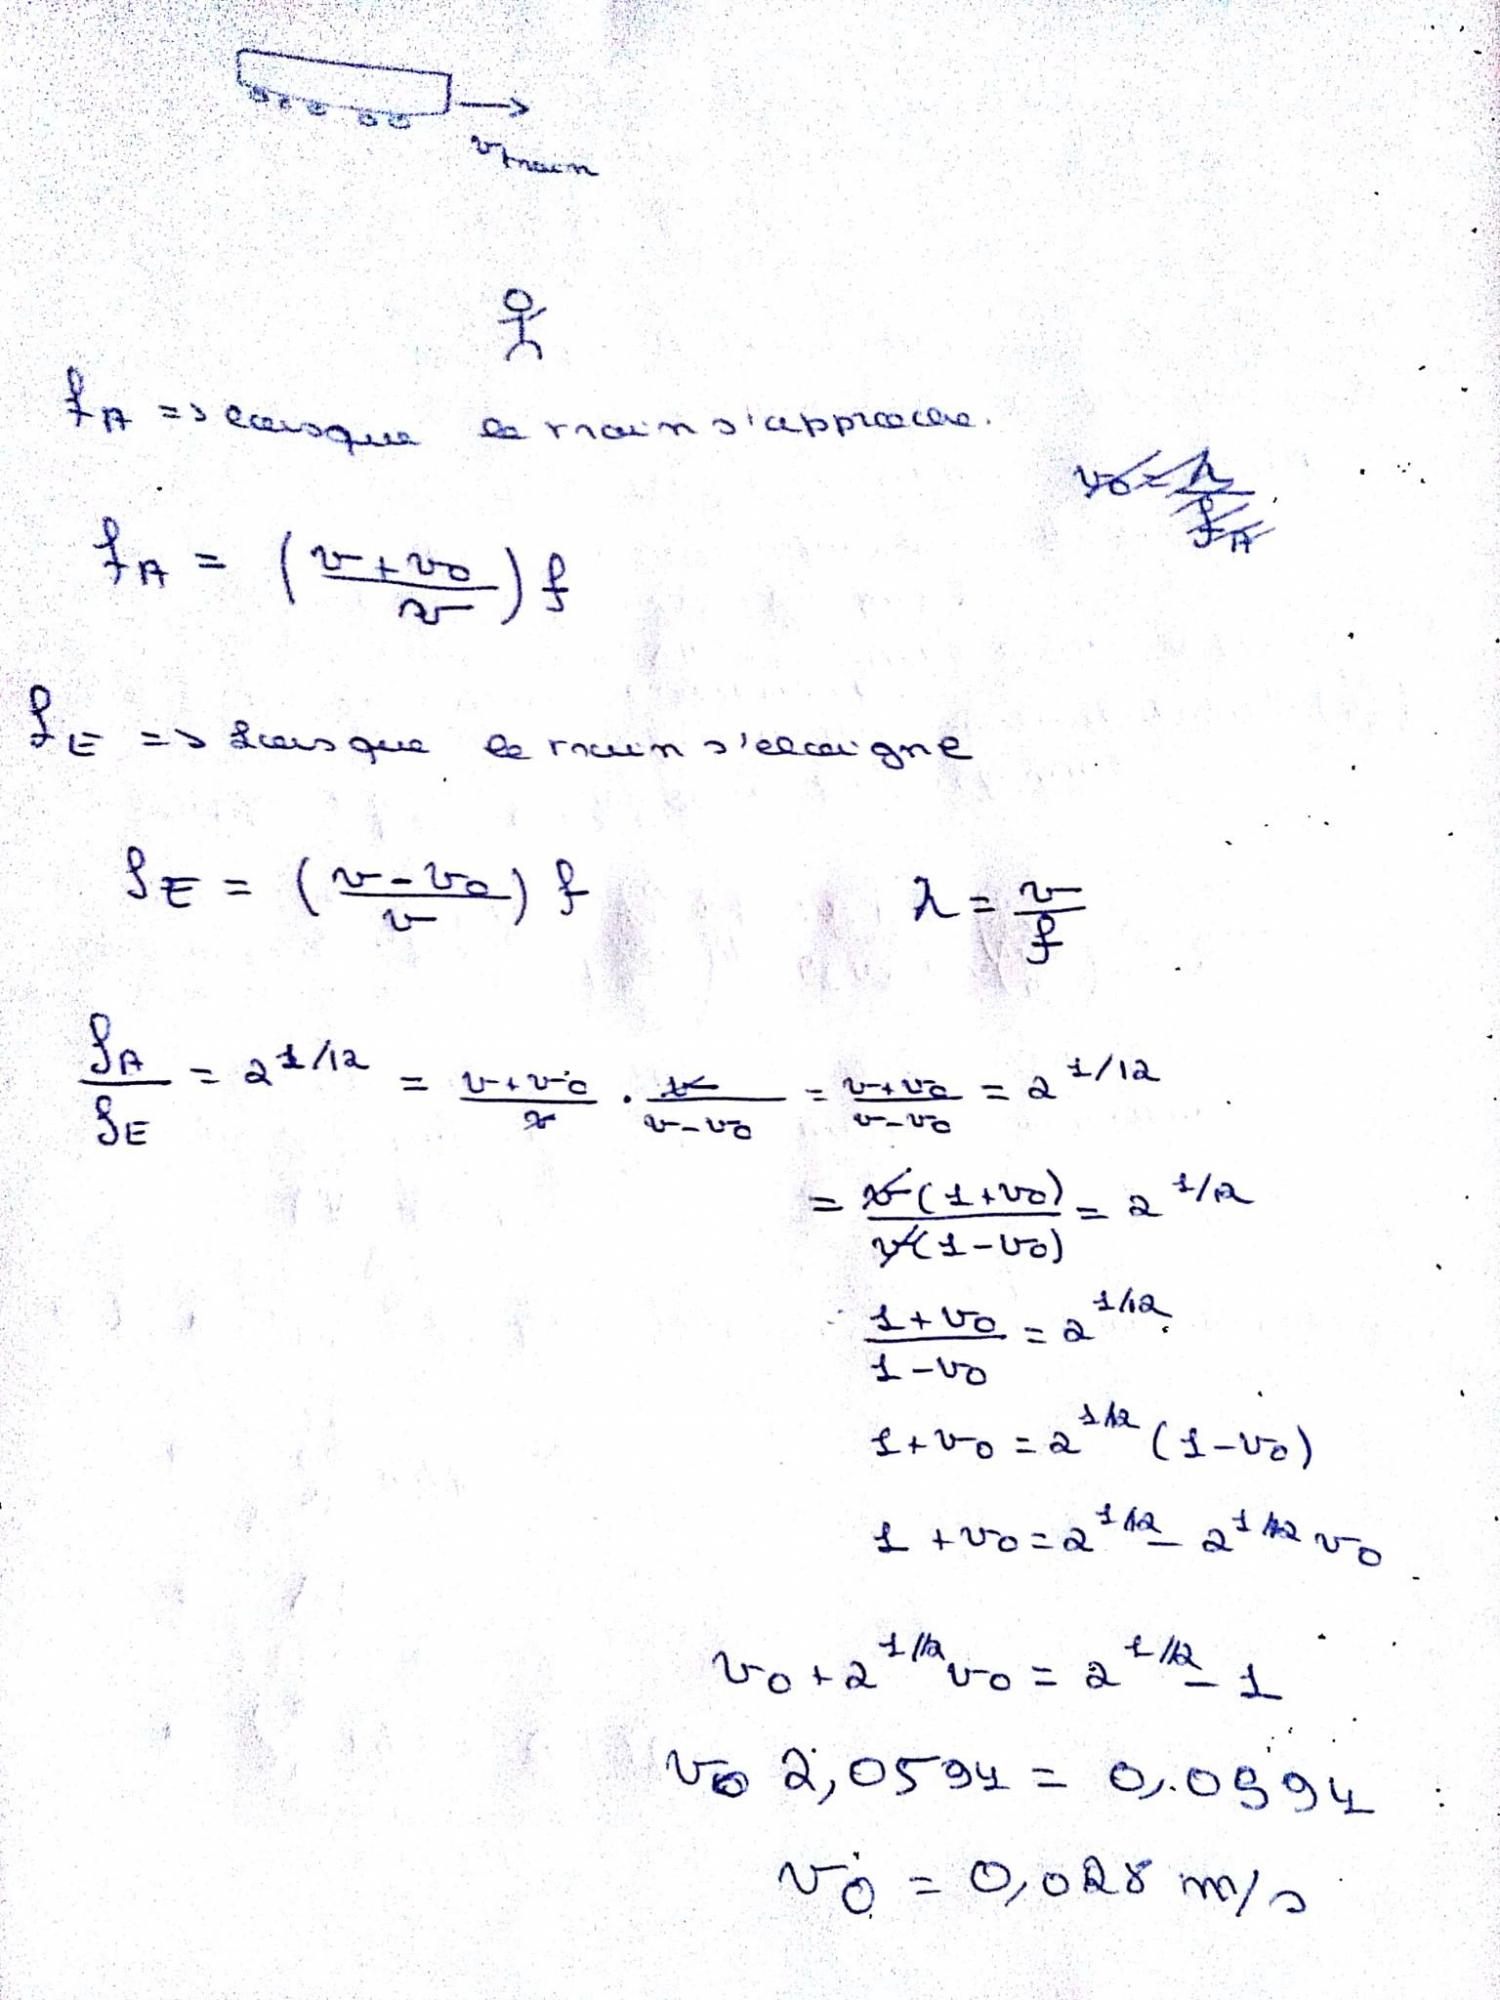 v train
f_A => lorsque le train s'approche.
f_A = ( (v + v_0) / v ) f
f_E => Lorsque le train s'éloigne
f_E = ( (v - v_0) / v ) f
λ = v / f
f_A / f_E = 2^{1/12} = (v + v_0) / v · v / (v - v_0) = (v + v_0) / (v - v_0) = 2^{1/12}
= v(1 + v_0) / v(1 - v_0) = 2^{1/12}
(1 + v_0) / (1 - v_0) = 2^{1/12}
1 + v_0 = 2^{1/12} (1 - v_0)
1 + v_0 = 2^{1/12} - 2^{1/12} v_0
v_0 + 2^{1/12} v_0 = 2^{1/12} - 1
v_0 2,0594 = 0,0594
v_0 = 0,028 m/s